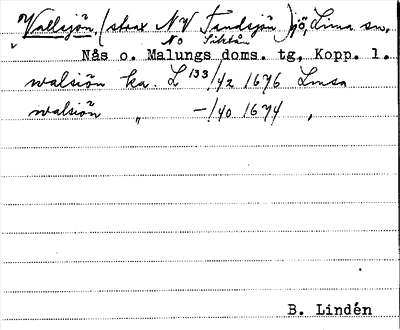 Vallsjön, (strax NV Tandsjön) sjö, Lima sn.
NO Siktån
Nås o. Malungs doms. tg, Kopp. l.
walsiön ka. L 133/42 1676 Lmsa
walsiön " —/40 1674 ,
B. Lindén